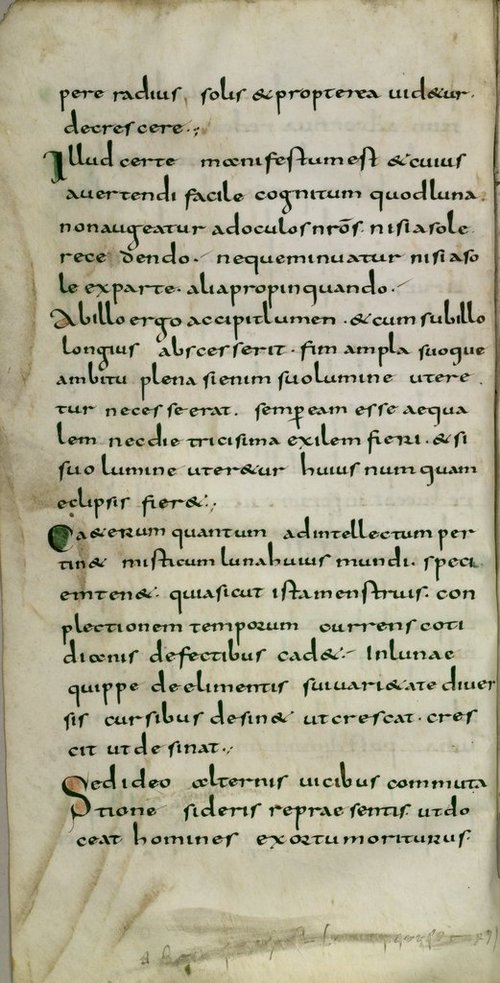 pere radius solis & propterea uid&ur.
decrescere.,
Illud certe manifestum est & cuius
auertendi facile cognitum quod luna
non augeatur ad oculos nrōs. nisi a sole
rece dendo. neque minuatur nisi a so
le ex parte. alia propinquando.
Ab illo ergo accipit lumen. & cum sub illo
longius abscesserit. fim ampla suo que
ambitu plena si enim suo lumine utere
tur necesse erat. semp eam esse aequa
lem nec die tricisima exilem fieri. & si
suo lumine uter&ur huius numquam
eclipsis fier&.,
Ca&erum quantum ad intellectum per
tin& misticum luna huius mundi. speci
em ten&. quia sicut ista menstruis. con
plectionem temporum currens coti
dianis defectibus cad&. In lunae
quippe de elimentis sui uari&ate diuer
sis cursibus desin& ut crescat. cres
cit ut desinat.,
Sed ideo alternis uicibus commuta
tione sideris repraesentis. ut do
ceat homines ex ortu moriturus.